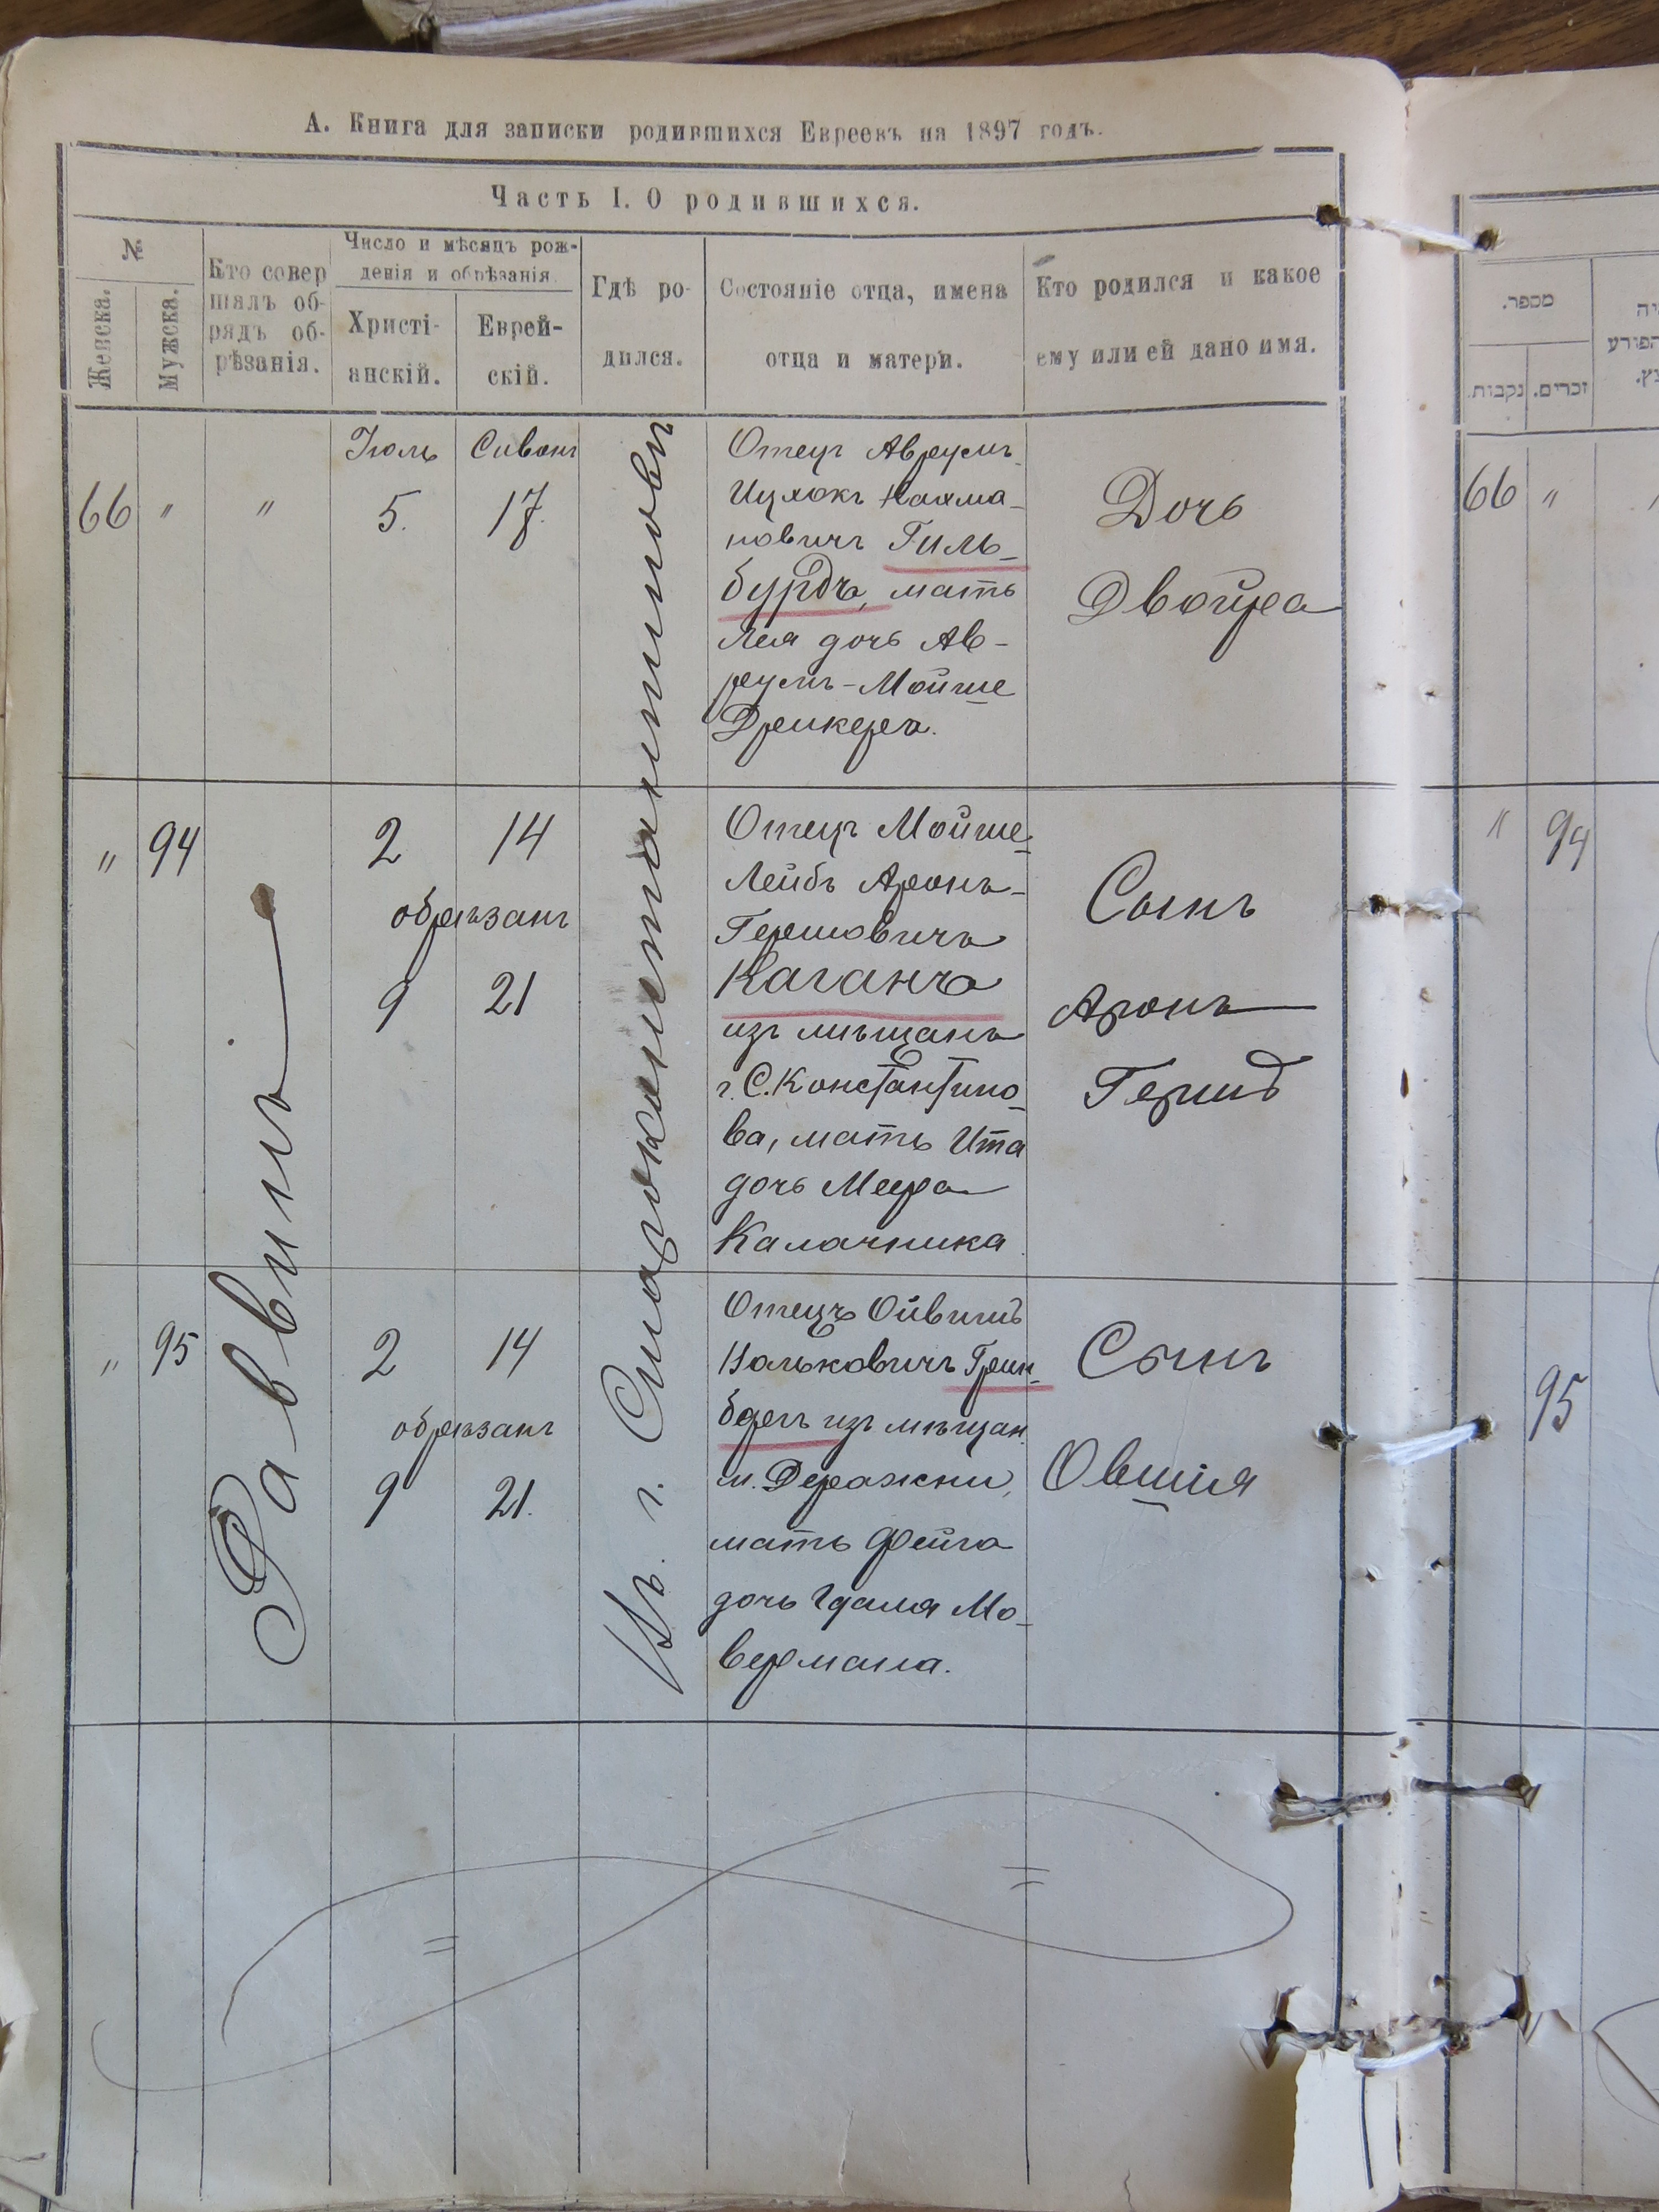 А. Книга для записки родившихся Евреевъ на 1897 годъ.
Часть I. О родившихся.
№
Женска.
Мужска.
Кто совер
шалъ об-
рядъ об-
рѣзанія.
Число и мѣсяцъ рож-
денія и обрѣзанія.
Христі-
анскій.
Еврей-
скій.
Гдѣ ро-
дился.
Состояніе отца, имена
отца и матери.
Кто родился и какое
ему или ей дано имя.
Раввинъ
Въ г. Староконстантиновѣ
66 " " Іюль 5. Сиванъ 17.
Отецъ Авреумъ
Ицхокъ Нахма-
новичъ Гиль-
бурдъ, мать
Лея дочь Ав-
реумъ-Мойше
Дрикера.
Дочь
Двойра
" 94 2 14
обрѣзанъ
9 21
Отецъ Мойше-
Лейбъ Аронъ-
Гершовичъ
Каганъ
изъ мѣщанъ
г. С. Константино-
ва, мать Ита
дочь Меера
Калачника
Сынъ
Аронъ
Гершъ
" 95 2 14
обрѣзанъ
9 21.
Отецъ Ойвишъ
Вольковичъ Грин-
берг изъ мѣщан.
м. Деражни,
мать Фейга
дочь Гдаля Мо-
вермана.
Сынъ
Овшія
מספר.
נקבות.
זכרים.
הפורע
66 "
" 94
95